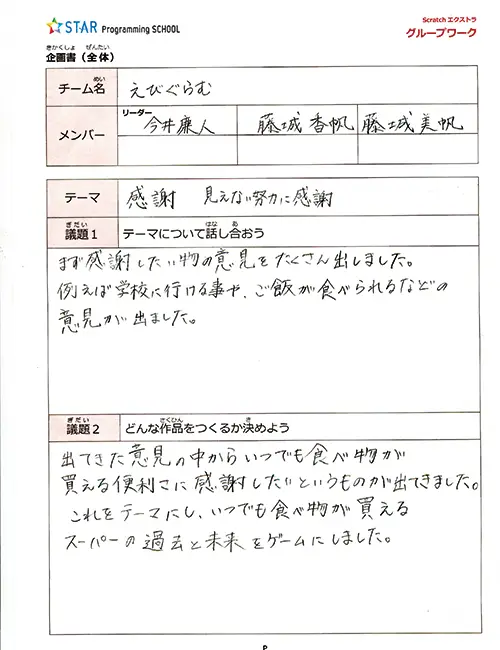 STAR Programming SCHOOL
Scratch エクストラ
グループワーク
きかくしょ ぜんたい
企画書（全体）
めい
チーム名 えびぐらむ
メンバー
リーダー
今井廉人 藤城香帆 藤城美帆
テーマ 感謝 見えない努力に感謝
ぎだい はな あ
議題1 テーマについて話し合おう
まず感謝したい物の意見をたくさん出しました。
例えば学校に行ける事や、ご飯が食べられるなどの
意見が出ました。
ぎだい さくひん き
議題2 どんな作品をつくるか決めよう
出てきた意見の中からいつでも食べ物が
買える便利さに感謝したいというものが出てきました。
これをテーマにし、いつでも食べ物が買える
スーパーの過去と未来をゲームにしました。
P